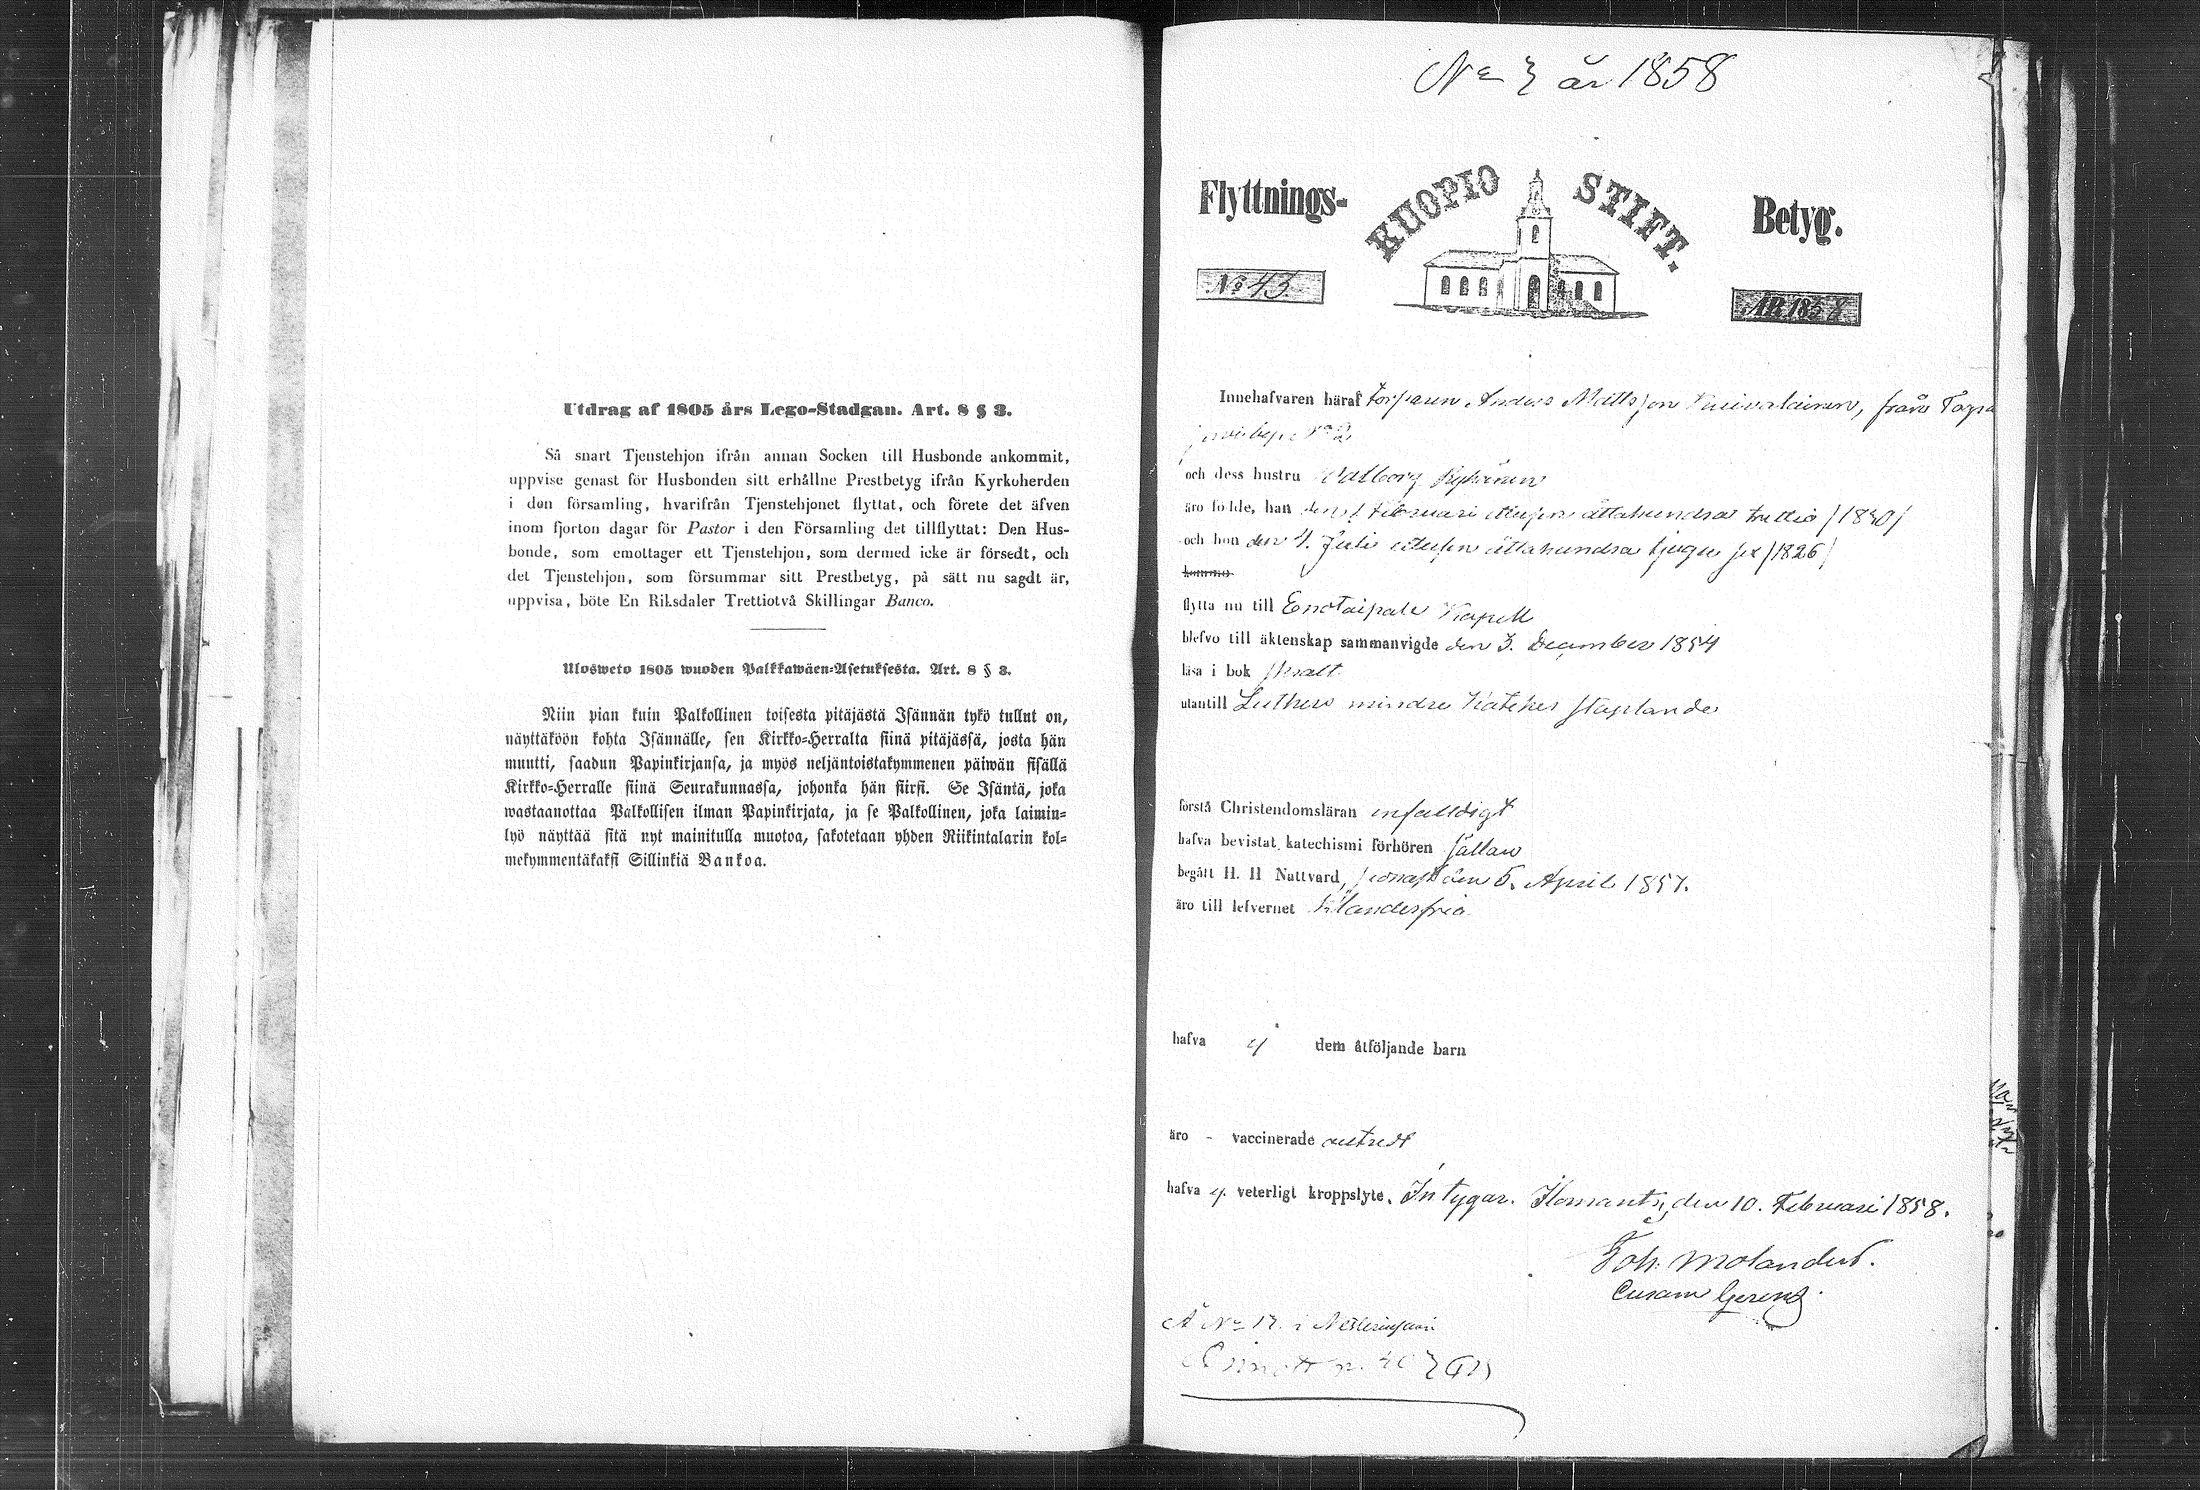 Utdrag af 1805 års Lego-Stadgan. Art. 8 § 3.
Så snart Tjenstehjon ifrån annan Socken till Husbonde ankommit,
uppvise genast för Husbonden sitt erhållne Prestbetyg ifrån Kyrkoherden
i den församling, hvarifrån Tjenstehjonet flyttat, och förete det äfven
inom fjorton dagar för Pastor i den Församling det tillflyttat: Den Hus-
bonde, som emottager ett Tjenstehjon, som dermed icke är försedt, och
det Tjenstehjon, som försummar sitt Prestbetyg, på sätt nu sagdt är,
uppvisa, böte En Riksdaler Trettiotvå Skillingar Banco.
Ulosweto 1805 wuoden Palkkawäen-Asetuksesta. Art. 8 § 3.
Niin pian kuin Palkollinen toisesta pitäjästä Isännän tykö tullut on,
näyttäköön kohta Isännälle, sen Kirkko-Herralta siinä pitäjässä, josta hän
muutti, saadun Papinkirjansa, ja myös neljäntoistakymmenen päiwän sisällä
Kirkko-Herralle siinä Seurakunnassa, johonka hän siirsi. Se Isäntä, joka
wastaanottaa Palkollisen ilman Papinkirjata, ja se Palkollinen, joka laimin-
lyö näyttää sitä nyt mainitulla muotoa, sakotetaan yhden Riikintalarin kol-
mekymmentäkaksi Sillinkiä Bankoa.
No 3 år 1858
Flyttnings- KUOPIO STIFT. Betyg.
No 43. ÅR 1858
Innehafvaren häraf Torparen Anders Mattsson från
No 2
och dess hustru Walborg
äro födde, han den 1 Februari adertonhundra trettio /1830/
och hon den 4. Julii adertonhundra tjugu sex /1826/
komma
flytta nu till Enotaipale Kapell
blefvo till äktenskap sammanvigde den 3. December 1854
läsa i bok svalt
utantill Luthers mindre Kateches staplande
förstå Christendomsläran enfaldigt
hafva bevistat katechismi förhören sällan
begått H. H Nattvard, senast den 5. April 1857.
äro till lefvernet klanderfria
hafva ej dem åtföljande barn
äro - vaccinerade
hafva ej veterligt kroppslyte. Intygar. Ilomants, den 10. Februari 1858.
Joh. Molander.